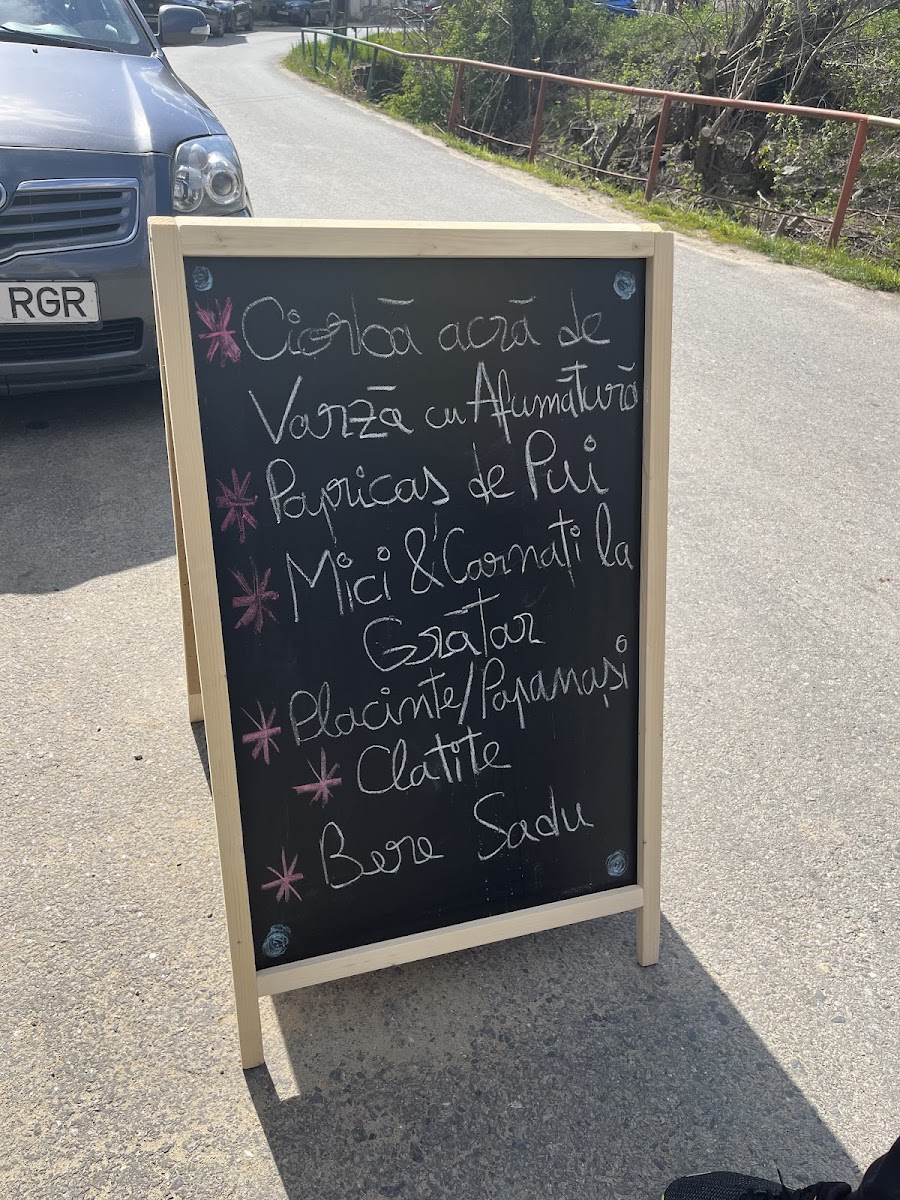 RGR
Ciorbă acră de
Varză cu Afumătură
Papricaș de Pui
Mici & Carnați la
Grătar
Placinte/Papanași
Clatite
Bere Sadu